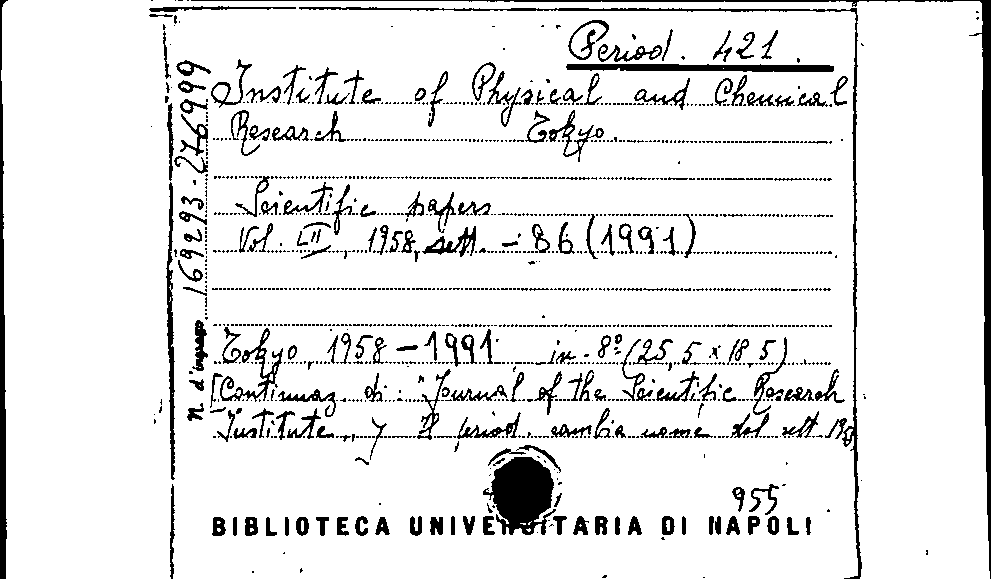 Period. 421.
Institute of Physical and Chemical
Research Tokyo.
Scientific papers
Vol. LII, 1958, sett. - 86 (1991)
Tokyo, 1958 - 1991 in-8° (25,5 x 18,5)
[Continuaz. di: "Journal of the Scientific Research
Institute„] Il period. cambia nome dal sett. 1958
955
BIBLIOTECA UNIVERSITARIA DI NAPOLI
N. d'ingresso 169293-276999